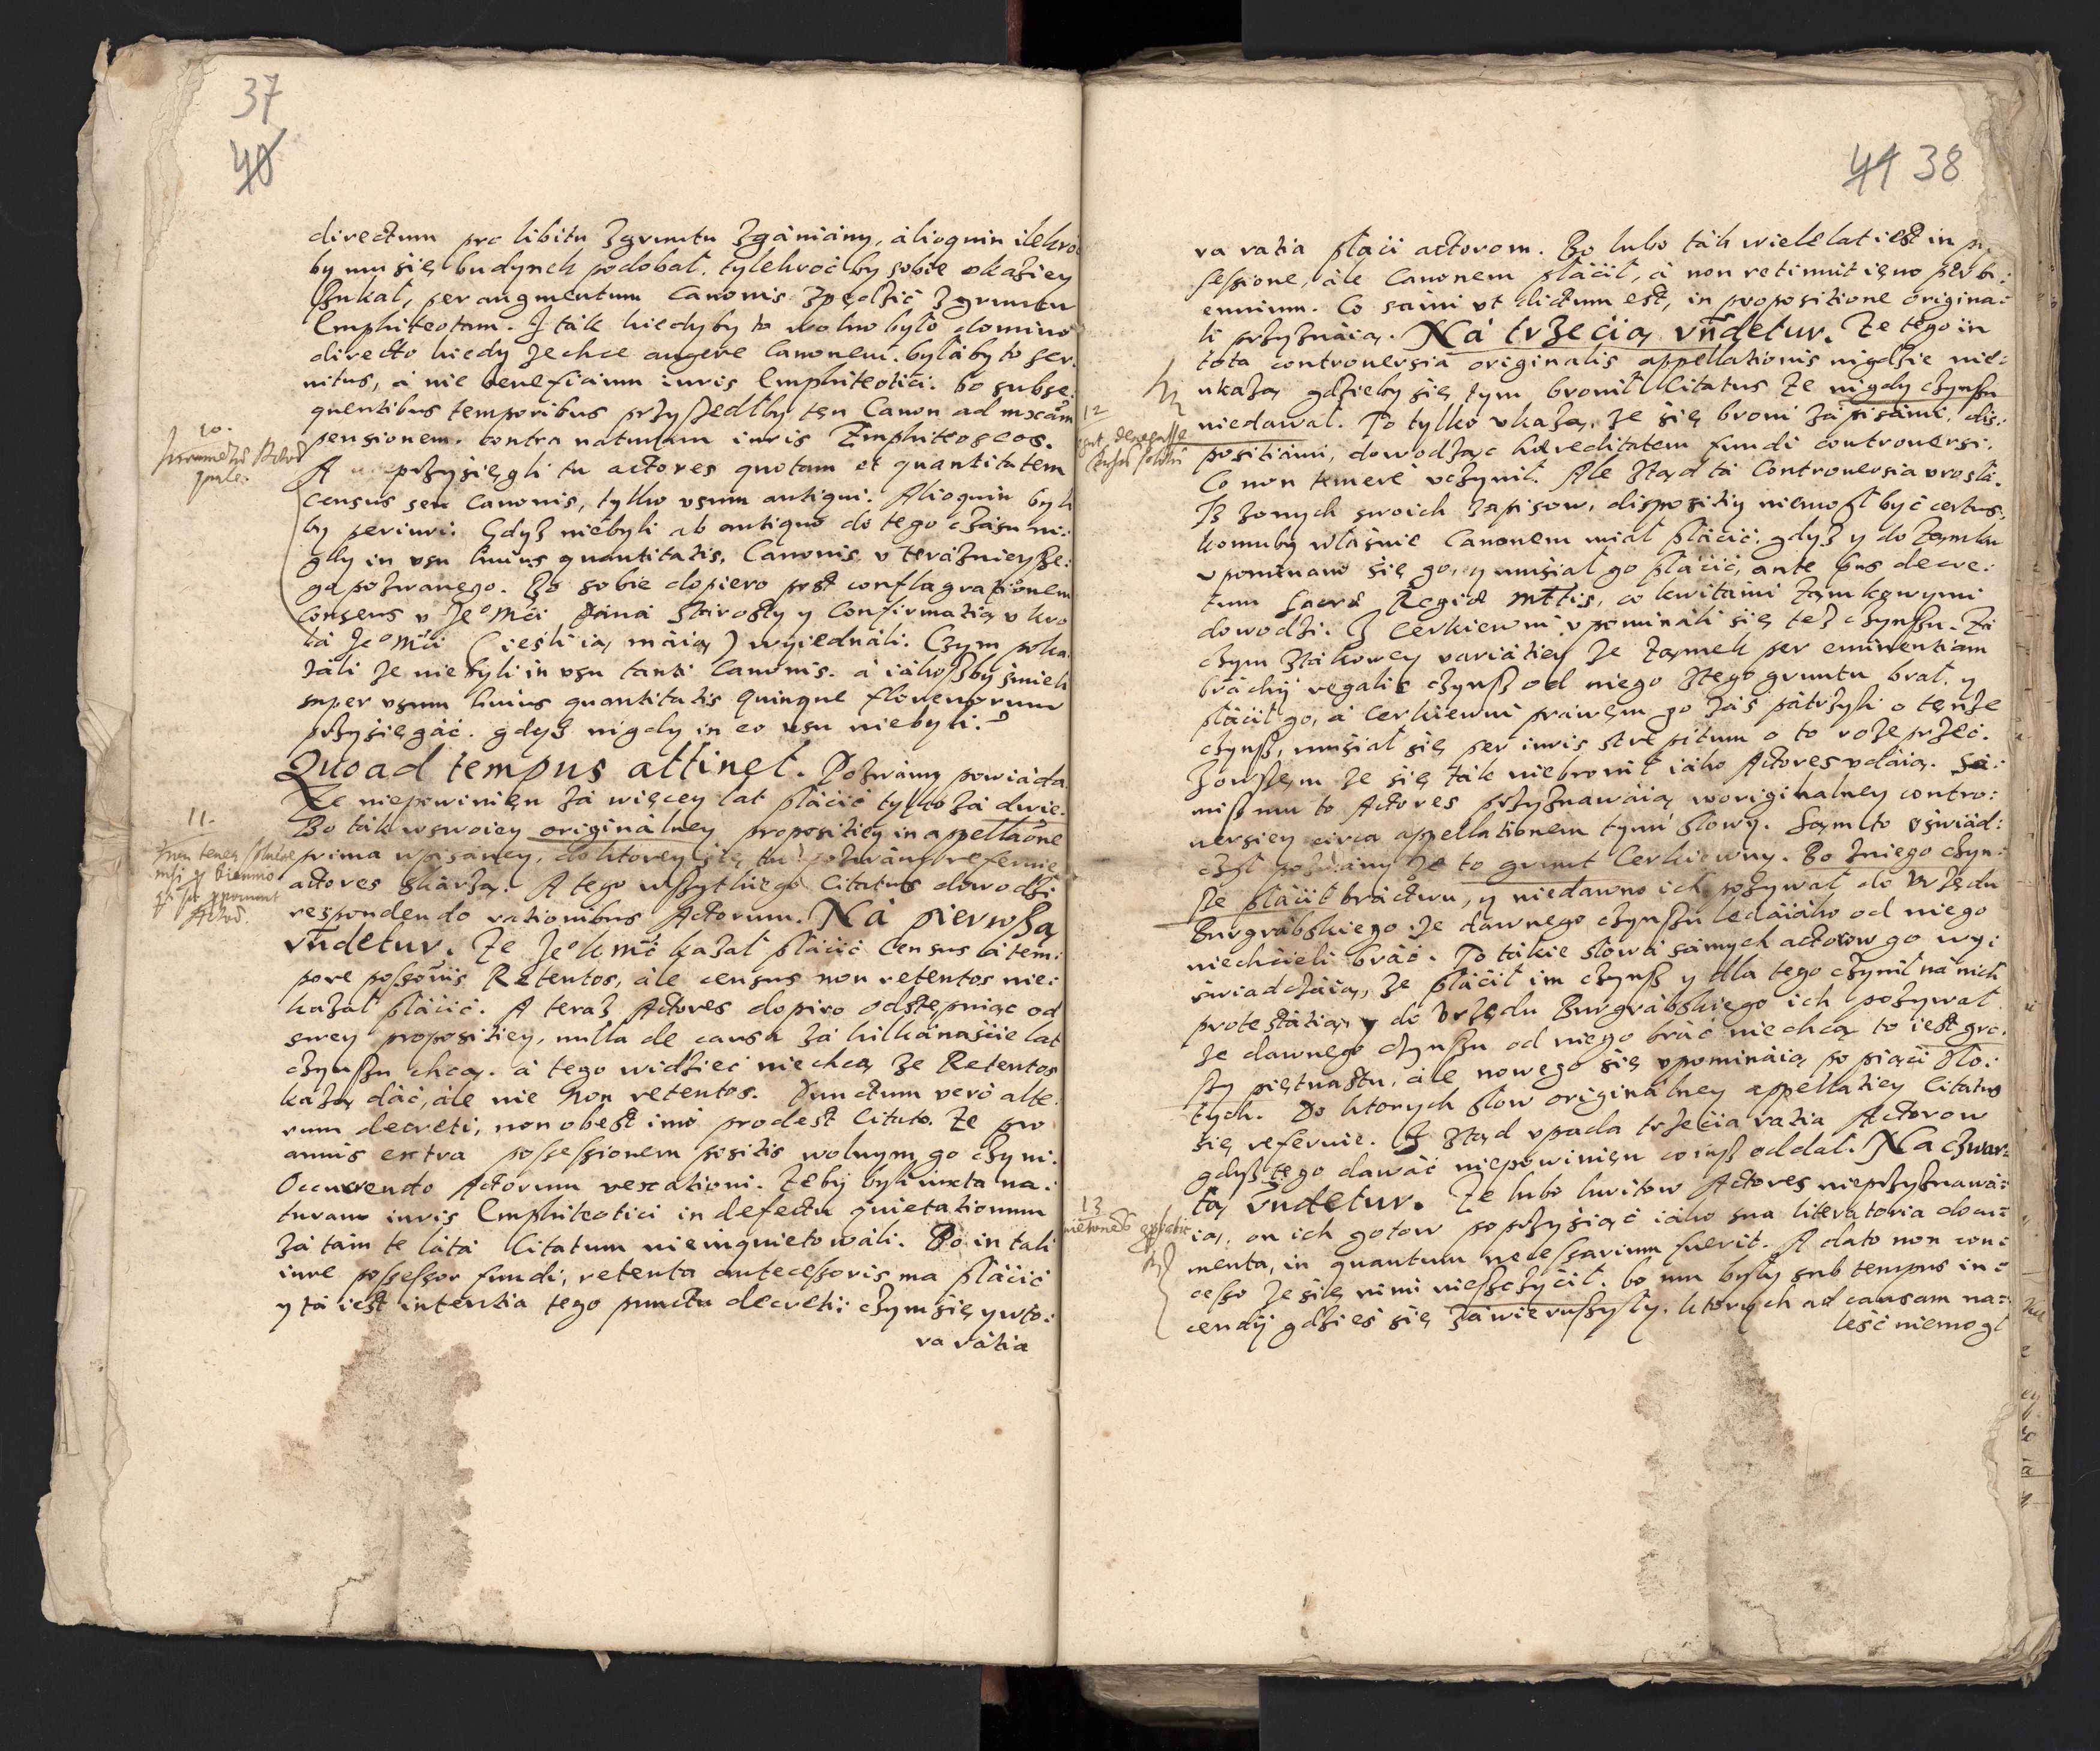 37
40
directum pro libitu zgruntu zgániány, álioquin ilekroć
by mu się budynek podobał. tylekroć by sobie okáziey
szukał, per augmentum Canonis zpędzić zgruntu
Emphiteotam. J ták kiedyby to wolno było domino
directo kiedy zechce augere Canonem. byłáby to ser:
uitus, á nie beneficium iuris Emphiteotici. bo subse:
quentibus temporibus przyszedłby ten Canon ad
pensionem. contra naturam iuris Emphiteoseos.
10.
A przysięgli tu actores quotam et quantitatem
census seu Canonis, tylko usum antiqui. Alioquin byli
by periuri. Gdysz niebyli ab antiquo do tego czásu ni:
gdy in usu huius quantitatis, Canonis v teráznieysze:
go pozwanego. Bo sobie dopiero post conflagrationem
consens v Je° Mći Páná Stárosty y Confirmatią v kro
lá Je° Mći (iesli ią máią) wyiednáli. Czym poka
záli ze nie byli in usu tanti Canonis. á iákoszby śmieli
super usum huius quantitatis quinque florenorum
przysięgáć. gdysz nigdy in eo usu niebyli?
Quoad tempus attinet. Pozwány powiáda
11.
Ze niepowinien zá więcey lat płácić tylko zá dwie.
Bo ták w swoiey originálney propositiey in appellaõne
prima vpisáney, do ktorey się tu pozwány referuie
actores skárzą. A tego wszytkiego Citatus dowodzi
respondendo rationibus Actorum. Ná pierwszą
vñdetur. Ze Je° K Mć kazał płácić Census lá tem:
pore possõnis Retentos, ále census non retentos nie:
kazał płácić. A teraz Actores dopiro odstępuiąc od
swey propositiey, nulla de causa zá kilkánaście lat
czynszu chcą. á tego widzieć niechcą ze Retentos
kázą dáć, ále nie Non retentos. Punctum verò alte
rum decreti, non obest imò prodest Citato. Ze pro
annis extra possessionem positis wolnym go czyni.
Occurrendo Actorum vexationi. Zeby byli iuxta na:
turam iuris Emphiteotici in defectu quietationum
zá tám te látá Citatum nieinquietowáli. Bo in tali
iure possessor fundi, retenta antecessoris ma płácić
y tá iest intentia tego punctu decreti: czym się y wto:
ra rátia
41 38
ra ratia płaci actorom. Bo lubo ták wiele lat iest in p
sessione, ále Canonem płácił, á non retinuit ieno per bi:
ennium. Co sámi vt dictum est, in propositione origina:
li przyznáią. Ná trzecią vñdetur. Ze tego in
tota controuersia originalis appellationis nigdzie nie:
ukażą gdzieby się tym bronił Citatus ze nigdy czynszu
12
niedawał. To tylko vkażą, ze się broni zápisámi, dis:
positiámi, dowodząc hæreditatem fundi controuersi.
Co non temerè vczynił. Ale ztąd tá Controuersia vrosłá.
Jz zonych swoich zapisow, dispozitiy niemogł być certus,
komuby własnie Canonem miał płácić, gdysz y do Zamku
vpominano się go, y musiał go płácić, ante decre:
tum Sacræ Regiæ Mttis, co kwitámi zamkowymi
dowodzi. J Cerkiewni vpomináli się tesz czynszu. Zá
czym ztákowey variátiey ze zamek per eminentiam
brachij regalis czynsz od niego ztego gruntu brał, y
płácił go, á Cerkiewni práwem go záś pátrzyli o tenze
czynsz, musiał się per iuris strepitum o to rozeprzeć.
Zowszem ze się ták niebronił iáko Actores vdáią. Sá:
misz mu to Actores przyznawáią woriginalney contro:
uersiey circa appellationem tymi słowy. Sam to oswiád:
czył pozwány ze to grunt Cerkiewny. Bo zniego czyn:
sze płácił bráctwu, y niedawno ich pozywał do Vrzędu
Burgrábskiego ze dawnego czynszu ledáiáko od niego
niechcieli bráć. To tákie słowá sámych actorow go wy:
świadczáią, ze płácił im czynsz y dla tego czynił ná nich
protestátią, y do Vrzędu Burgrábskiego ich pozywał
ze dawnego czynszu od niego bráć niechcą to iest gro:
szy piętnastu, ále nowego się vpomináią po piąci zło:
tych. Do ktorych słow originálney appellatiey Citatus
się referuie. Y ztąd vpada trzecia ratia Actorow
gdysz tego dawáć niepowinien co iusz oddał. Na czwar:
13
tą vñdetur. Ze lubo kwitow Actores nieprzyznawá:
ią, on ich gotow poprzysiąć iáko sua literatoria docu:
menta, in quantum necessarium fuerit. A dato non con:
cesso ze się nimi nieszczycił. bo mu były sub tempus in:
cendij gdzieś się záwieruszyły. ktorych ad causam na:
leść niemogł